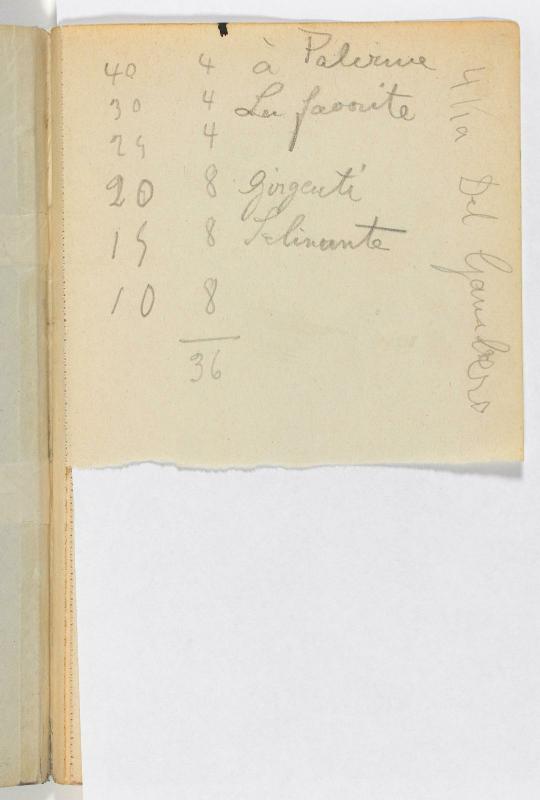 40 4 à Palerme
30 4 La favorite
25 4
20 8 Girgenti
15 8 Selinunte
10 8
36
Via Del Gambero